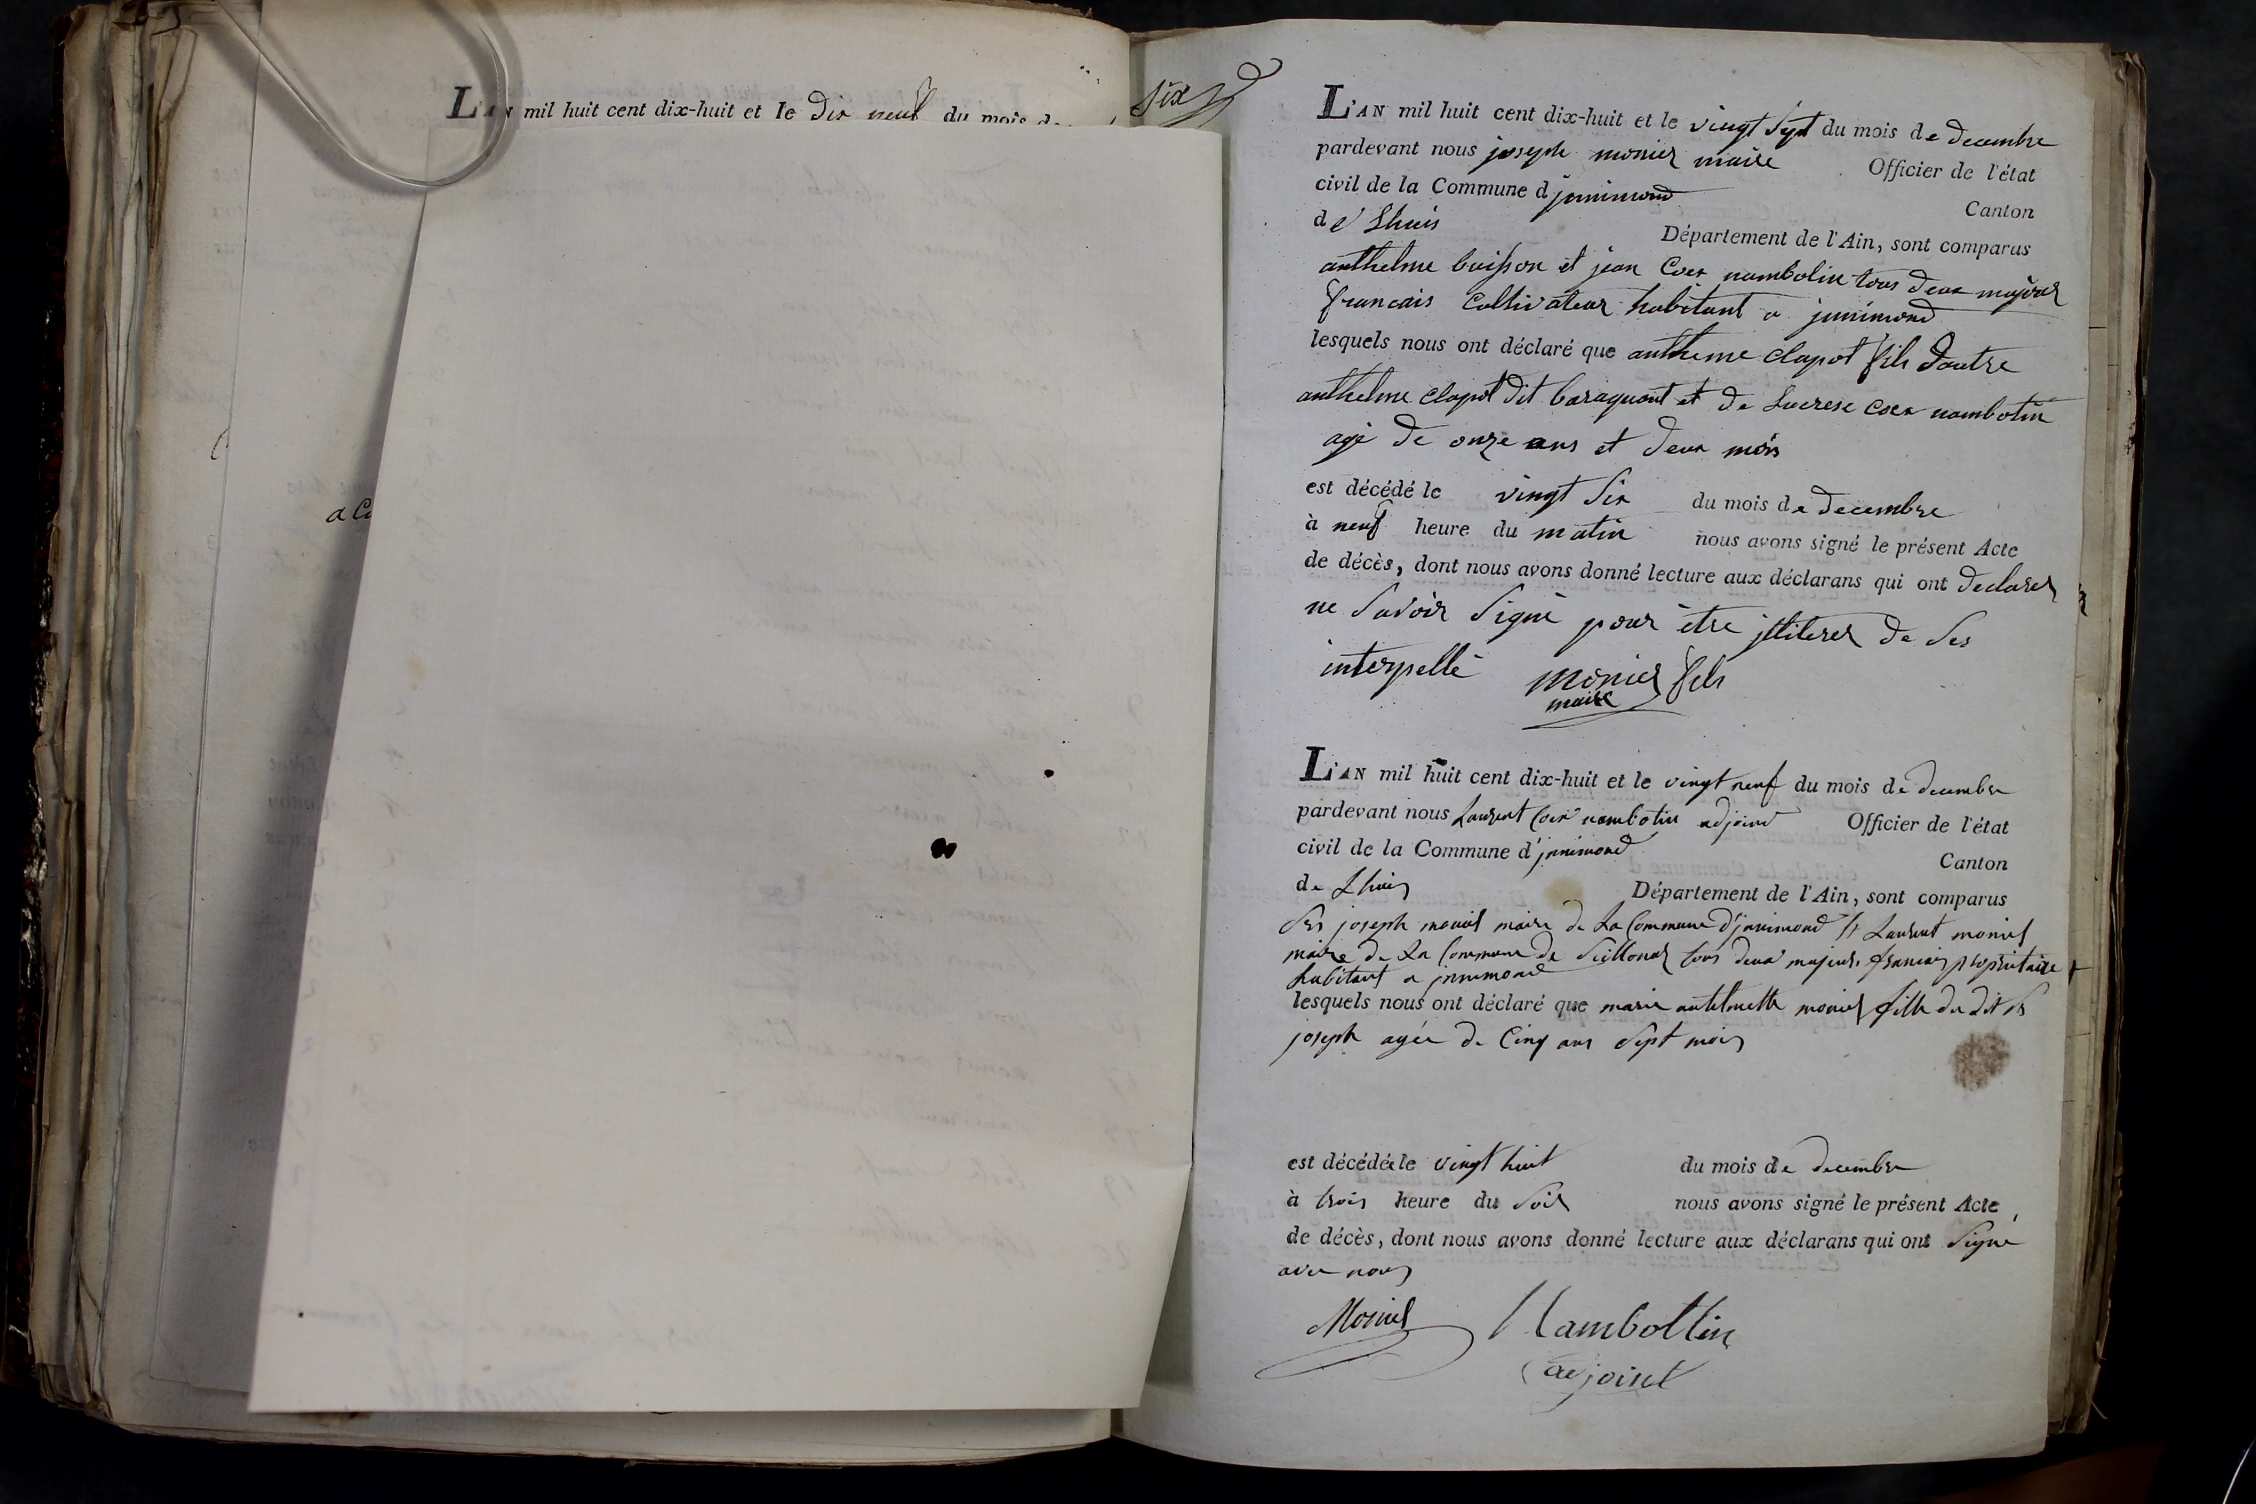 L'AN mil huit cent dix-huit et le dix neuf du mois d
a C
six
L'AN mil huit cent dix-huit et le vingt Sept du mois de decembre
pardevant nous joseph monier maire Officier de l'état
civil de la Commune d jnnimond
Canton
de Lhuis Département de l'Ain, sont comparus
anthelme buisson et jean Coer nambotin tous deux majeur
francais Cultivateur habitant a jnnimond
lesquels nous ont déclaré que anthelme clapot fils dautre
anthelme clapot dit baraquant et de Lucrese coer nambotin
agé de onze ans et deux mois
est décédé le vingt Six du mois de decembre
à neuf heure du matin nous avons signé le présent Acte
de décès, dont nous avons donné lecture aux déclarans qui ont declarer
ne Savoir Signé pour être de Ses
interpellé monier fils
maire
L'AN mil huit cent dix-huit et le vingt neuf du mois de decembre
pardevant nous Laurent Coer nambotin adjoint Officier de l'état
civil de la Commune d'jnnimond
Canton
de Lhuis Département de l'Ain, sont comparus
joseph monier maire de La Commune d'jnnimond Laurent monier
maire de La Commune de Seillonas tous deux majeurs francais proprietaire
habitant a jnnimond
lesquels nous ont déclaré que marie antelmette monier fille du dit
joseph agée de Cinq ans Sept mois
est décédée le vingt huit du mois de decembre
à trois heure du Soir nous avons signé le présent Acte
de décès, dont nous avons donné lecture aux déclarans qui ont Signé
avec nous
Monier Nambottin
adjoint